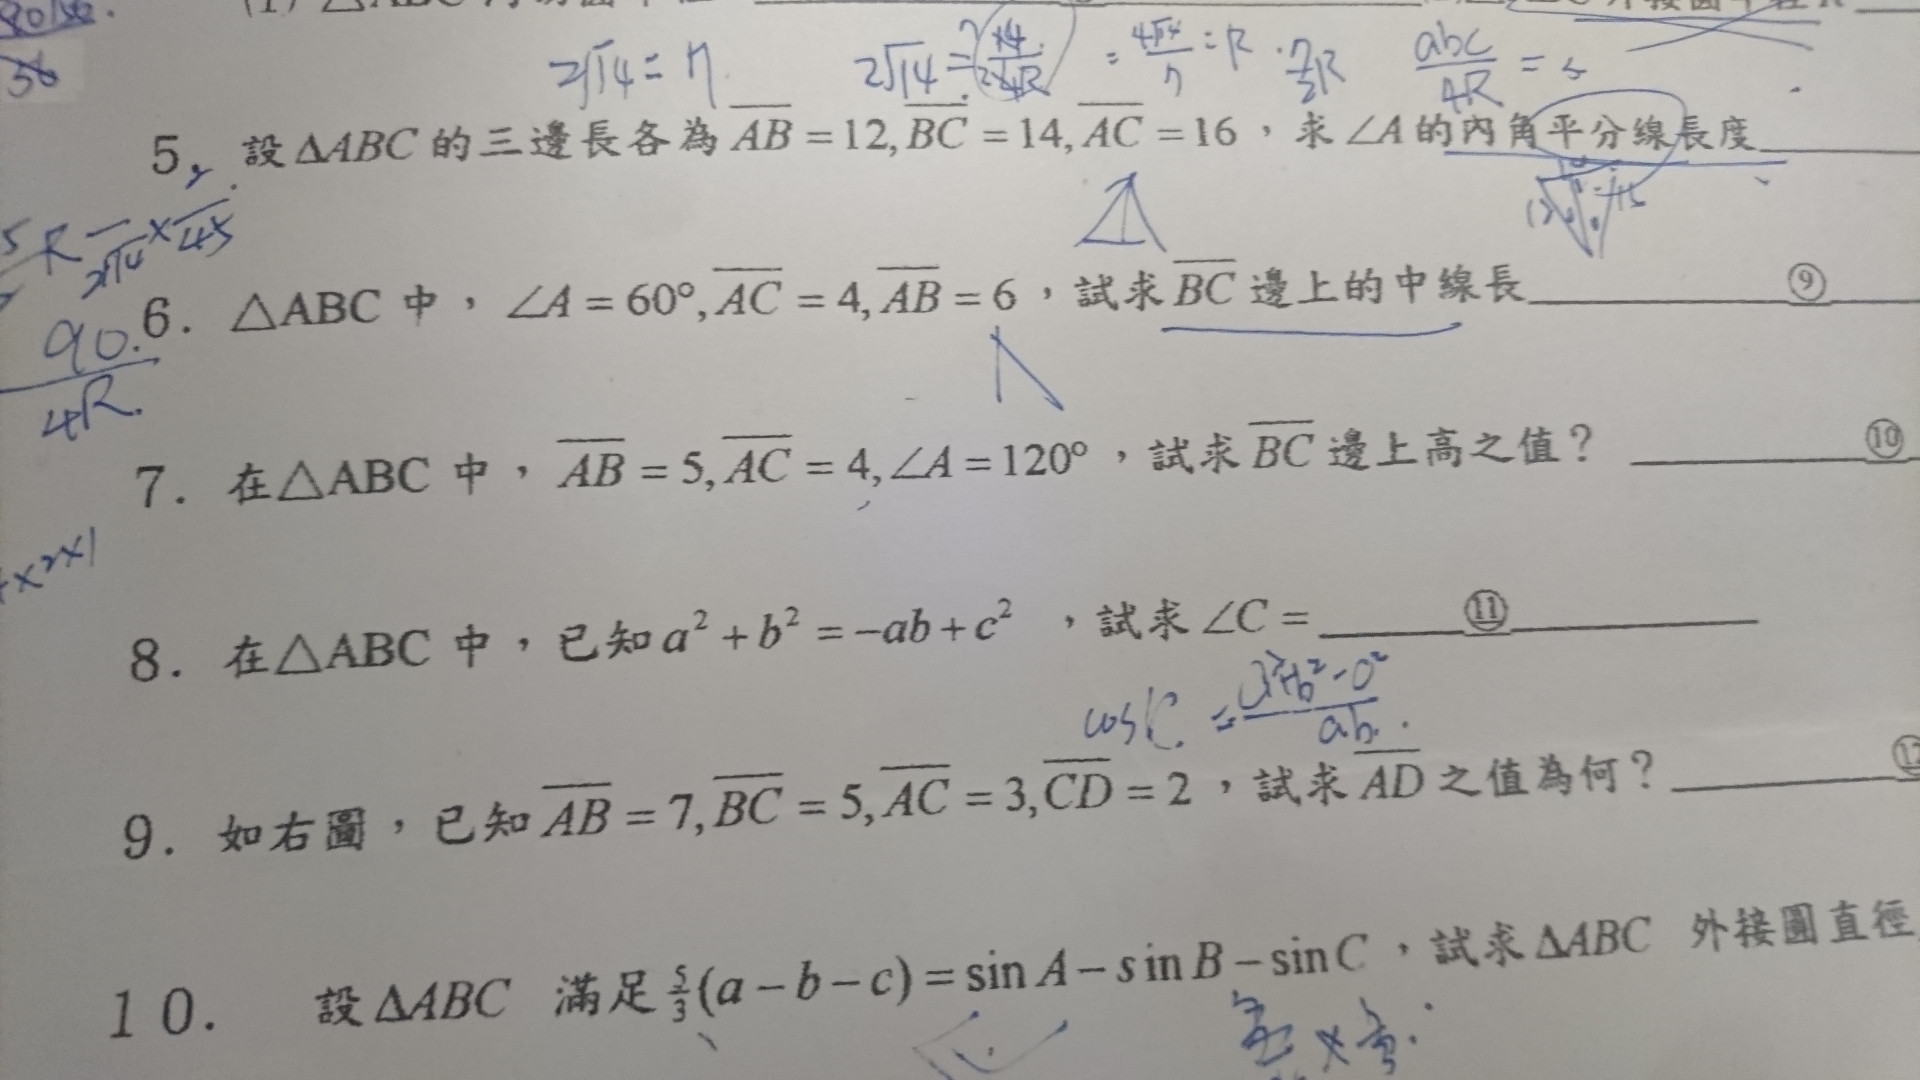 36
2√14 = 7
2√14 =
= 4√14/7 = R
abc/4R = s
5. 設ΔABC 的三邊長各為 AB = 12, BC = 14, AC = 16，求∠A 的內角平分線長度
6. △ABC 中，∠A = 60°, AC = 4, AB = 6，試求 BC 邊上的中線長 ⑨
90.
4R.
7. 在△ABC 中， AB = 5, AC = 4, ∠A = 120°，試求 BC 邊上高之值？ ⑩
8. 在△ABC 中，已知 a² + b² = −ab + c² ，試求 ∠C = ⑪
cos C =
ab.
9. 如右圖，已知 AB = 7, BC = 5, AC = 3, CD = 2，試求 AD 之值為何？
10. 設ΔABC 滿足 5/3 (a − b − c) = sin A − sin B − sin C，試求 ΔABC 外接圓直徑